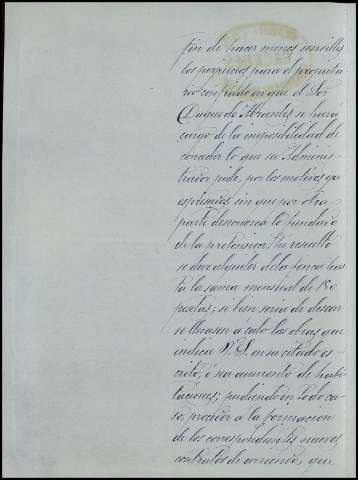 fin de hacer menos sensibles
los perjuicios para el propieta
rio confiado en que el Sor
Duque de Abrantes se hará
cargo de la imposibilidad de
conceder lo que su Adminis-
trador pide, por los motivos ya
espresados, sin que por otra
parte desconozca lo fundado
de la pretension, ha resuelto
se den alquiler de la finca has
ta la suma mensual de
pesetas; si bien seria de desear
se llevasen á cabo las obras que
indica V. S. en su citado es-
crito, ó sea aumento de habi-
taciones; pudiendo en todo ca-
so, proceder á la formacion
de los correspondientes nuevos
contratos de arriendo, que